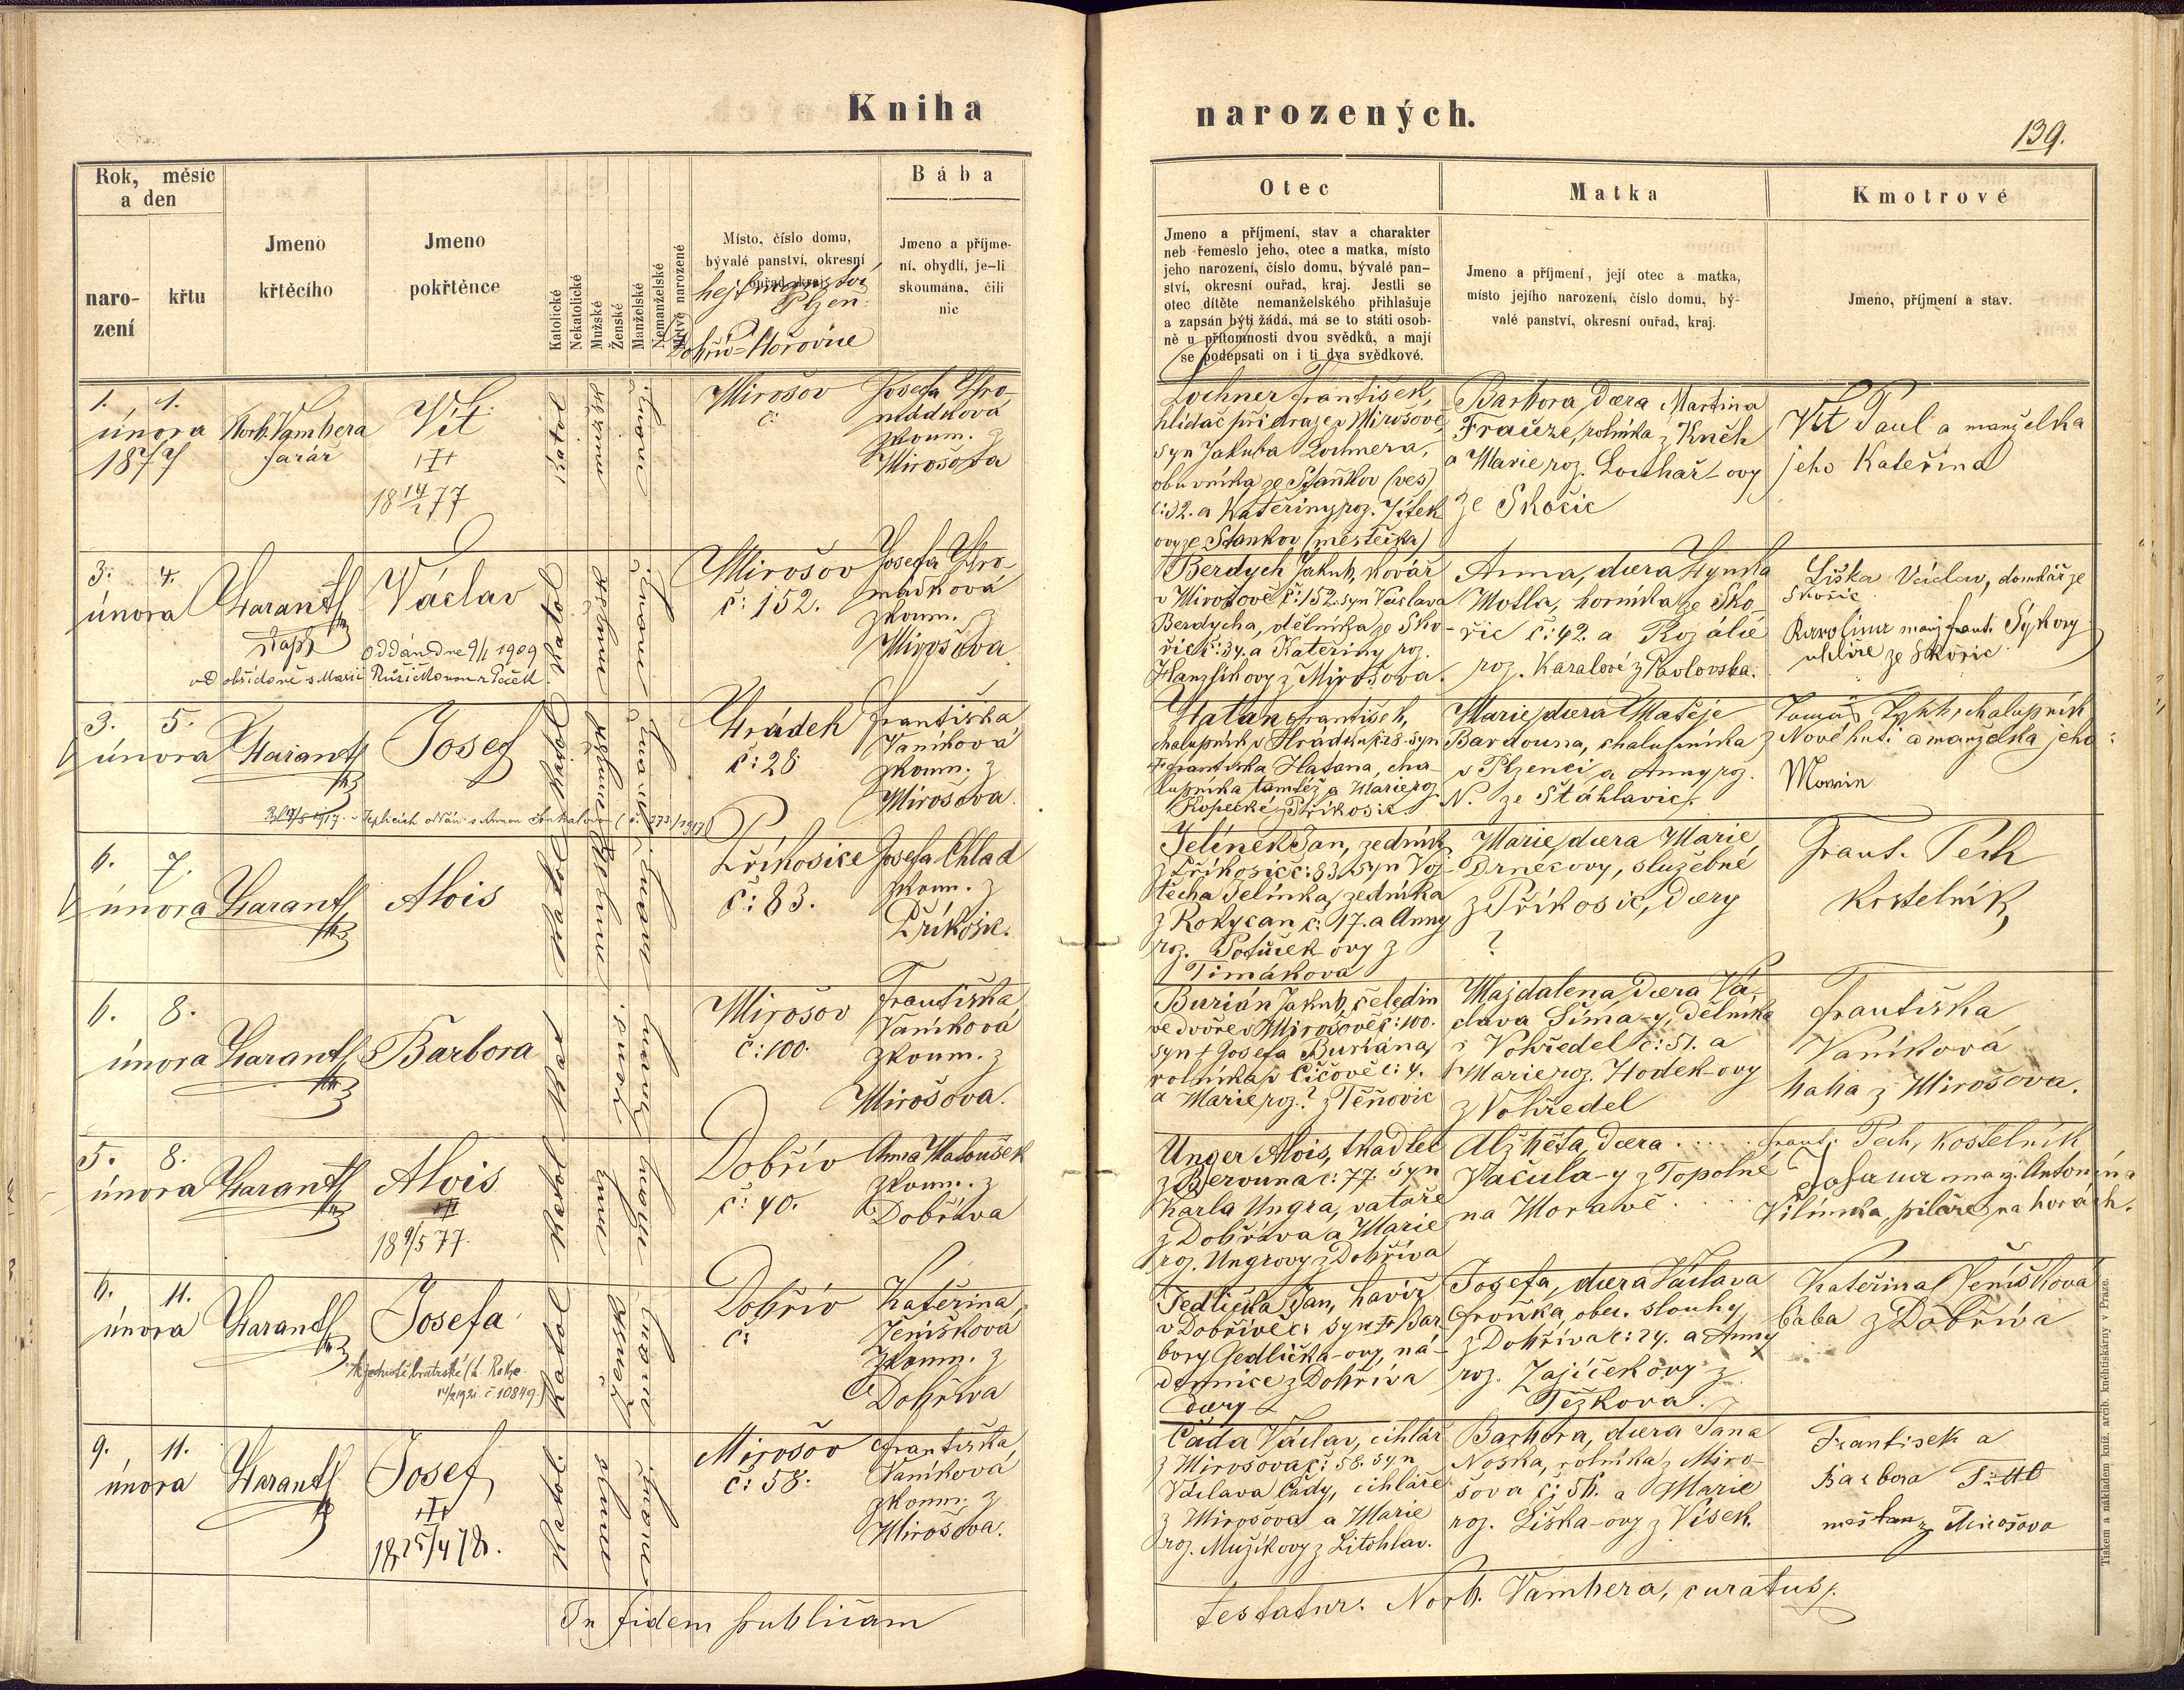 Kniha
narozených.
139.
Rok, měsíc
a den
naro-
zení
křtu
Jmeno
křtěcího
Jmeno
pokřtěnce
Katolické
Nekatolické
Mužské
Ženské
Manželské
Nemanželské
Mrtvě narozené
Místo, číslo domu,
bývalé panství, okresní
hejtmanství
Plzeň
Dobřív=Hořovice
Bába
Jmeno a příjme-
ní, obydlí, je-li
skoumána, čili
nic
Otec
Jmeno a příjmení, stav a charakter
neb řemeslo jeho, otec a matka, místo
jeho narození, číslo domu, bývalé pan-
ství, okresní ouřad, kraj. Jestli se
otec dítěte nemanželského přihlašuje
a zapsán býti žádá, má se to státi osob-
ně u přítomnosti dvou svědků, a mají
se podepsati on i ti dva svědkové.
Matka
Jmeno a příjmení, její otec a matka,
místo jejího narození, číslo domu, bý-
valé panství, okresní ouřad, kraj.
Kmotrové
Jmeno, příjmení a stav.
1. 1.
února
1877
Norb. Vambera
farář
Vít
18 14/1 77
katol
Mirošov
č:
Josefa Hro-
mádková
zkoum. z
Mirošova
Lochner František,
hlídač při dráze v Mirošově,
syn Jakuba Lochnera,
obuvníka ze Staňkov (ves)
č:32. a Kateřiny roz. Jílek
ovy ze Stankov (městečka)
Barbora, dcera Martina
Frauze, rolníka z Kněh
a Marie roz. Louhař-ovy
ze Skočic
Vít Paul a manželka
jeho Kateřina
3. 4.
února
Harantl
kapl
Václav
Oddán dne 9/1 1909
s Marií Růžičkovou z Peček
Mirošov
č: 152.
Josefa Hro-
mádková
zkoum. z
Mirošova
Berdych Jakub, kovář
v Mirošově č:152. syn Václava
Berdycha, dělníka ze Sko-
řic č:34. a Kateřiny roz.
Hanzlíkovy z Mirošova.
Anna, dcera Hynka
Motla, horníka ze Sko-
řic č:42. a Rozálie
roz. Karalové z Pavlovska.
Liška Václav, domkář ze
Skořic
Karolina manž. Frant. Sýkory
uhlíře ze Skořic
3. 5.
února
Harantl
Josef
Hrádek
č:28
Františka
Vaníková
zkoum. z
Mirošova.
Hatan František,
chalupník v Hrádku č:28. syn
Františka Hatana, cha-
lupníka tamtéž a Marie roz
Kopecké z Příkosic
Marie, dcera Matěje
Bardouna, chalupníka
v Plzenci a Anny roz.
N. ze Štáhlavic.
chalupník
z Nové huti a manželka jeho
6. 7.
února
Harantl
Alois
Příkosice
č: 83.
Josefa Chlad
zkoum. z
Příkosic.
Jelínek Jan, zedník
z Příkosic č:83. syn Voj-
těcha Jelínka, zedníka
z Rokycan č: 17. a Anny
roz. Potůček-ovy z
Timákova
Marie, dcera Marie
Drnecovy, služebné
z Příkosic, dcery
?
Frant. Pech
kostelník
6. 8.
února
Harantl
Barbora
Mirošov
č:100.
Františka
Vaníková
zkoum. z
Mirošova.
Burián Jakub, čeledín
ve dvoře v Mirošově č:100.
syn † Josefa Buriána,
rolníka v Čičově č: 4.
a Marie roz. ? z Těňovic
Majdalena, dcera Vá-
clava Šíma-y, dělníka
z Vohředel č:51. a
Marie roz. Hodek-ovy
z Vohředel
Františka
Vaníková
baba z Mirošova.
5. 8.
února
Harantl
Alois
18 9/5 77.
Dobřív
č: 40.
Anna Matoušek
zkoum. z
Dobříva
Unger Alois, tkadlec
z Berouna č:77. syn
Karla Ungra, vatáře
z Dobříva a Marie
roz. Ungrovy z Dobříva
Alžběta, dcera . . . . .
Vačula-y z Topolné
na Moravě . . . .
Frant. Pech, kostelník
Johana manž. Antonína
Vilímka, pilaře na horách.
6. 11.
února
Harantl
Josefa
K jednotě bratrské (h. Rokyc
14/2 1921. č 10849)
Dobřív
č:
Kateřina
Jeníšková
zkoum. z
Dobříva
Jedlička Jan, havíř
v Dobřívě č: syn † Bar-
bory Jedlička-ovy, ná-
dennice z Dobříva
dcery
Josefa, dcera Václava
Froňka, obec. slouhy
z Dobříva č:24. a Anny
roz. Zajíčekovy z
Těškova.
Kateřina Jeníškova
baba z Dobříva
9. 11.
února
Harantl
Josef
18 25/4 78.
Mirošov
č: 58.
Františka
Vaníková
zkoum. z
Mirošova.
Čada Václav, cihlář
z Mirošova č: 58. syn
Václava Čady, cihláře
z Mirošova a Marie
roz. Mužíkovy z Litohlav.
Barbora, dcera Jana
Noska, rolníka z Miro-
šova č: 56. a Marie
roz. Liška-ovy z Vísek.
Frantisek a
Barbora
měšťan z Mirošova
In fidem publicam
testatur: Norb. Vambera, curatus.
Tiskem a nákladem kníž. arcib. knihtiskárny v Praze.